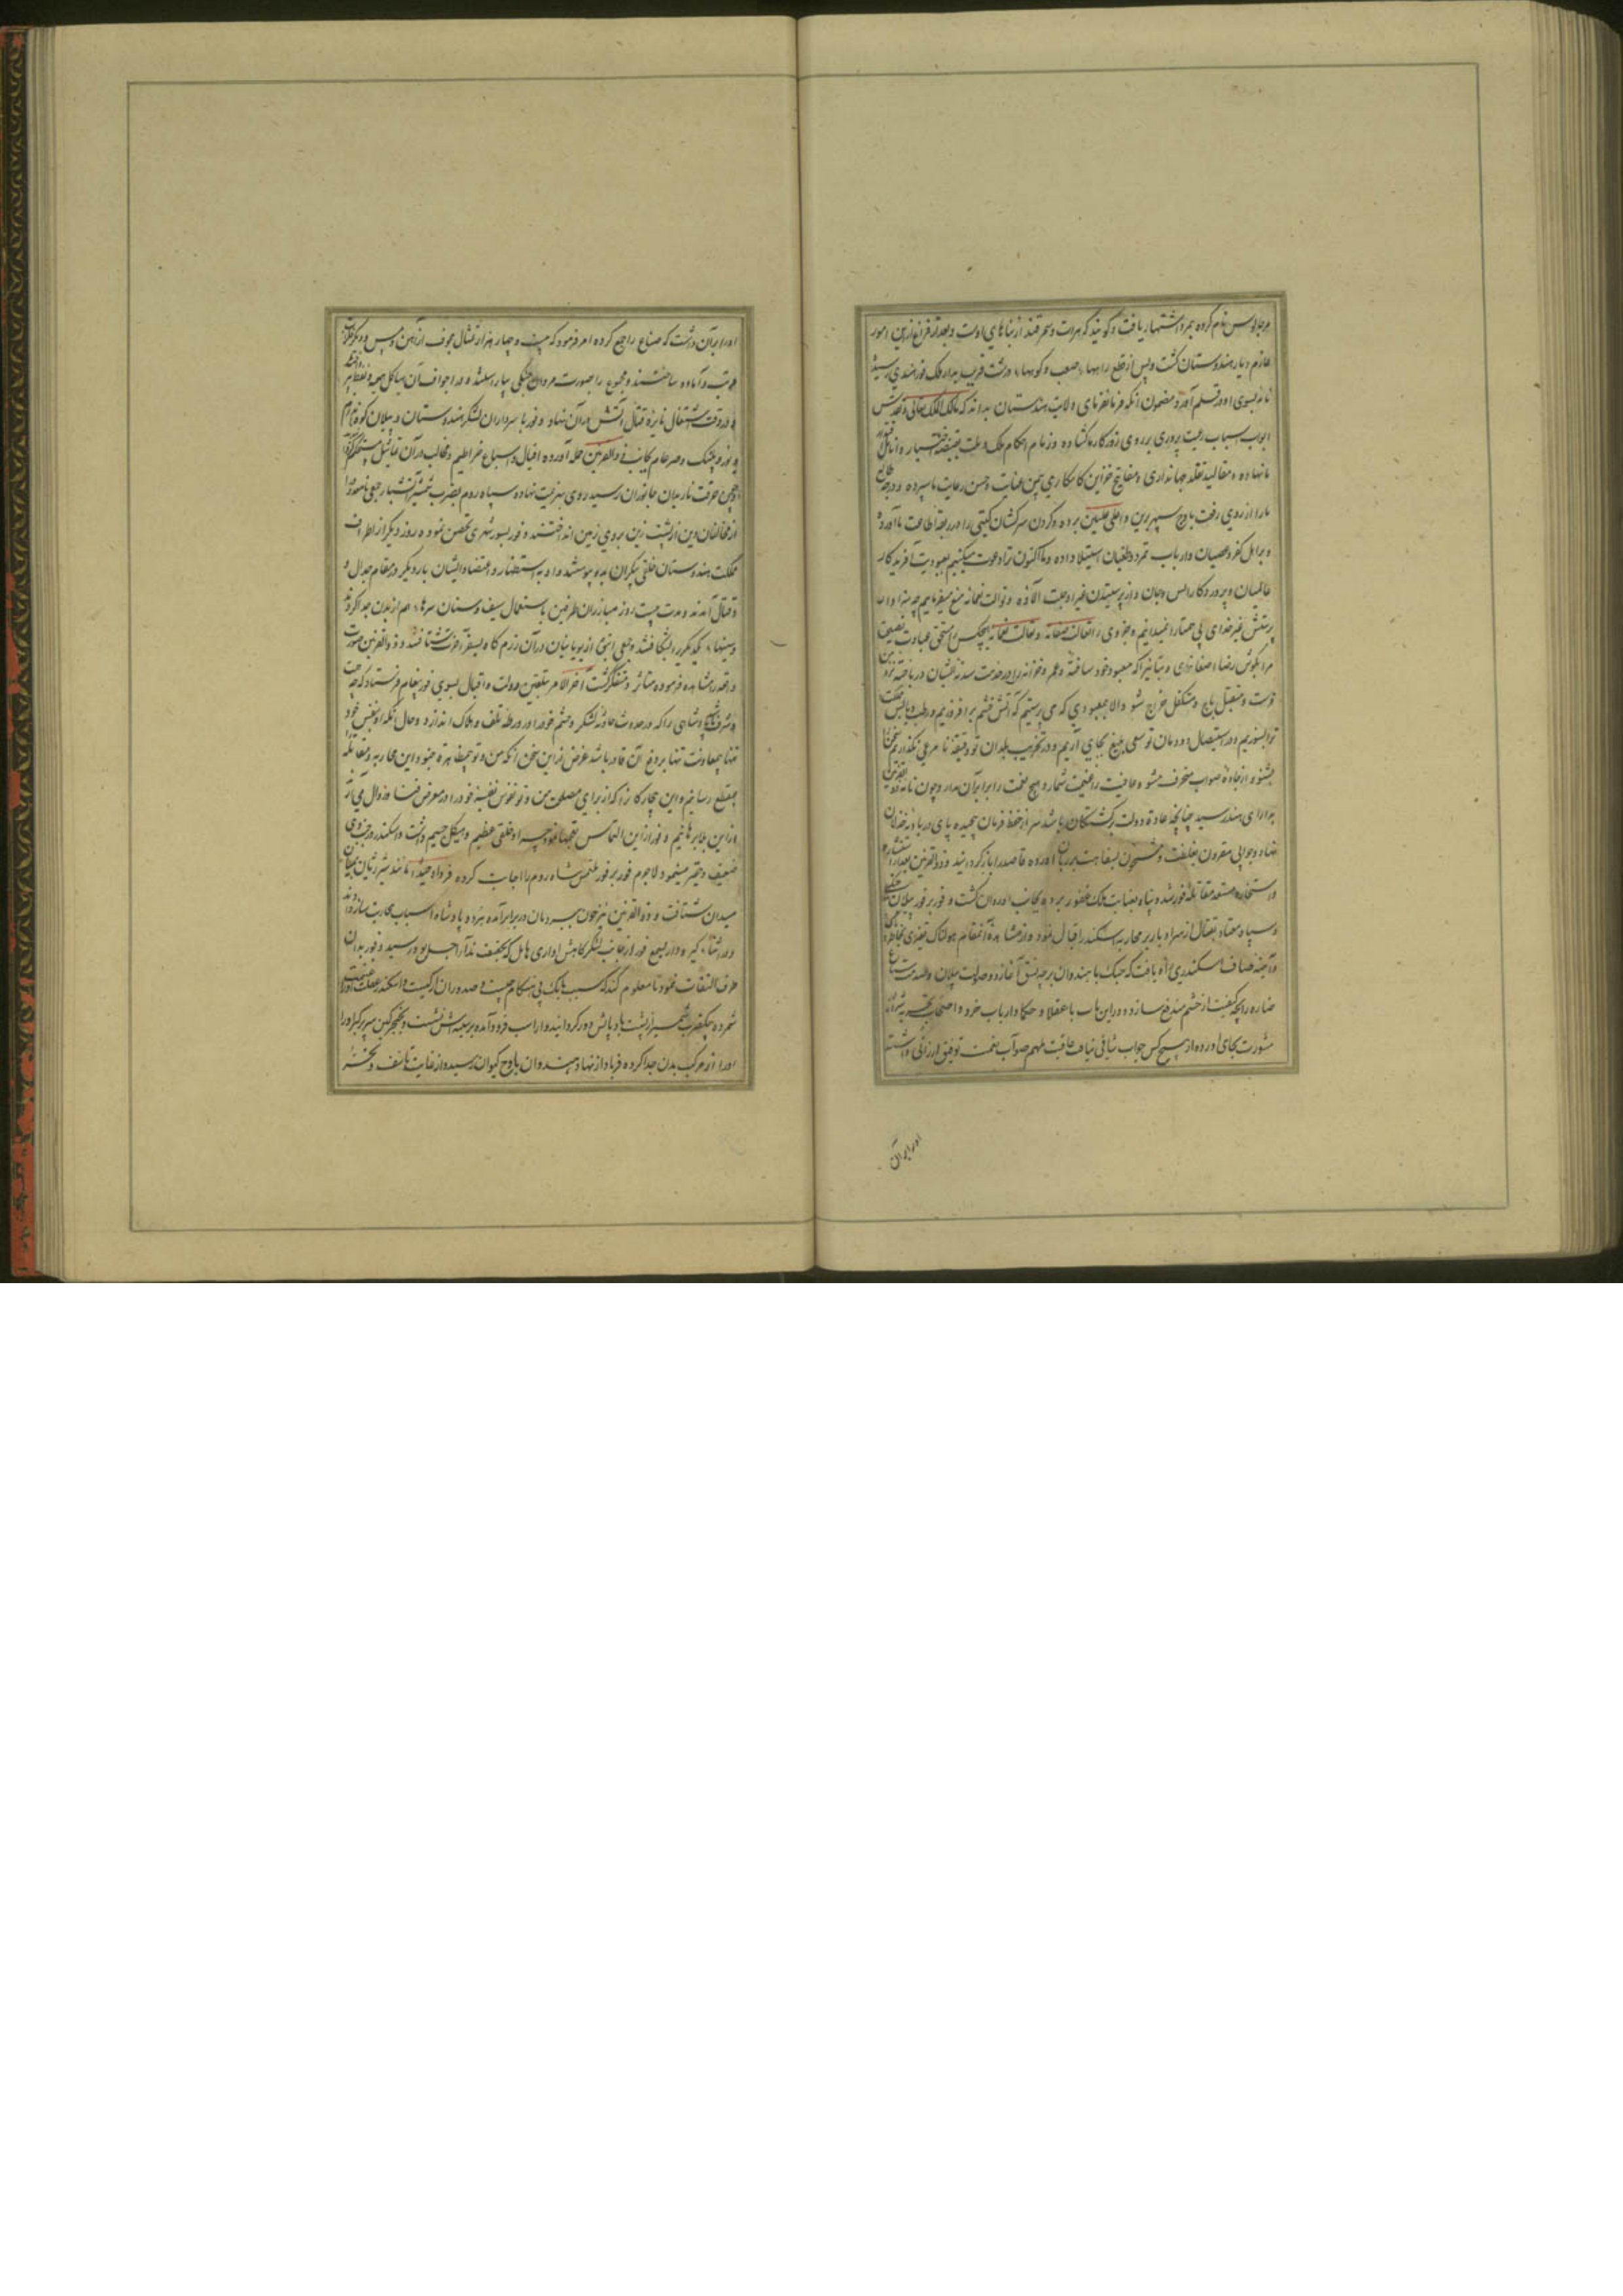 نام کرده بمرو اشتهار یافت و گویند که هرات و سمرقند از بناهای اوست و بعد از فراغ ازین امور
عازم دیار هندوستان گشت و پس از قطع راهها صعب و کوهها درشت قریب بدار ملک فور هندی رسیده
نامه بسوی او در قلم آورد مضمون آنکه فرمانفرمای ولایت هندوستان بداند که مالک الملک تعالی و تقدس
ابواب اسباب رعیت پروری بر روی روزگار ما گشاده و زمام احکام ملک و ملت بقبضه اختیار و انامل
ما نهاده و مقالید تقلد جهانداری و مفاتیح خزاین کامکاری بیمن عنایت و حسن رعایت ما سپرده و درجه
ما را از روی رفعت باوج سپهر برین و اعلی علیین برده و گردن سرکشان گیتی را در ربقه اطاعت ما آورده
و بر اهل کفر و عصیان و ارباب تمرد و طغیان استیلا داده و ما اکنون ترا دعوت میکنیم بعبودیت آفریدگار
عالمیان و پروردگار انس و جان و از پرستیدن غیر او منع میفرماییم چه سزاوار
پرستش غیر خدای بی همتا را نمیدانیم و بجز وی هیچکس مستحق عبادت نیست
مرا بگوش رضا اصغا نمای و بتانیرا که معبود خود ساخته
فرست و متقبل باج و متکفل خراج شو والا بمعبودی که می پرستیم که آتش خشم بر افروزیم و رطب و یابس
ترا بسوزیم و در استیصال دودمان تو سعی بلیغ بجای آریم و در تخریب بلدان تو دقیقه نامرعی نگذاریم سخن
بشنو و از جاده صواب منحرف مشو و عافیت را غنیمت شمار و هیچ نعمت را برابر آن مدار و چون نامه ذو القرنین
به رای هند رسید چنانچه عادت دولت برگشتگان باشد سر از خط فرمان پیچیده پای در بادیه خذلان
نهاد و جوابی مقرون بغلظت و مشحون بسفاهت بر زبان آورده قاصد را باز گردانید و ذو القرنین بعد از استشاره
و استخاره مستعد مقاتله فور شده و پناه بعنایت ملک غفور برده بجانب او روان گشت و فور بر فور پیلان جنگی
و سپاه معتاد بقتال از همراه بار بر محاربه اسکندر اقبال نمود و از مشاهده آن مقام هولناک تغیری بخاطر
و آینه صاف اسکندری راه یافت که جنگ با هندوان بر چه نسق آغازد و صولت پیلان و صدمت سباع
ضاره را بچه کیفیت از خشم مندفع سازد و درین باب با عقلا و حکما و ارباب خرد و اصحاب تجربه شرایط
مشورت بجای آورده از هیچکس جواب شافی نیافت عاقبت ملهم صواب نعمت توفیق ارزانی داشته
او را بر آن
او را بر آن داشت که صناع را جمع کرده امر فرمود که بیست و چهار هزار تمثال مجوف از آهن و مس
مرتب و آماده ساختند و مجموع را بصورت مردان جنگی بیاراستند و در اجواف آن هیاکل
و در وقت اشتعال نایره قتال آتش در آن نهاد و فور با سرداران لشکر هندوستان و پیلان کوه اندام
و یوز و پلنگ و صرعام بجانب ذو القرنین حمله آورده افیال و سباع خراطیم و مخالب در آن تماثیل مستحکم
و چون حرقت نار بدان جانوران رسید روی بهزیمت نهاده سپاه روم بضرب تیغ آتشبار جمعی نامعدود را
از مخالفان دین از پشت زین بر روی زمین انداختند و فور بسور شهری تحصن نمود و روز دیگر از اطراف
مملکت هندوستان خلقی بیکران بدو پیوستند و او به استظهار و اعتضاد ایشان بار دیگر در مقام جدال و
قتال آمدند و مدت بیست روز مبارزان طرفین باستعمال سیف و سنان سرها از بدن جدا کردند
و سینها یکدیگر را بشکافتند و جمعی از یونانیان در آن رزمگاه بسفر آخرت شتافتند و ذو القرنین صورت
واقعه را مشاهده فرموده متاثر و متفکر گشت آخر الامر بتلقین دولت و اقبال بسوی فور پیغام فرستاد که چه
شرف پادشاهی را که در حدوث حادثه لشکر و حشم خود را در ورطه تلف و هلاک اندازد و حال آنکه او بنفس خود
تنها بی معاونت بر دفع آن قادر باشد غرض از این سخن آنکه من و تو بی مظاهرت جنود این محاربه و مقاتله
بمقطع رسانیم و این بیچارگان را که از برای مصلحت من و تو نفوس نفیسه خود را در معرض فنا و زوال می آرند
از این بلا برهانیم و فور از این التماس مبتهج شد چه او خلقی عظیم و هیکل جسیم داشت و اسکندر در جنب وی
ضعیف و حقیر مینمود لاجرم فور بر فور ملتمس شاه روم را اجابت کرده فرداً وحیداً مانند شیر ژیان
میدان شتافت و ذو القرنین نیز چون ببر دمان در برابر آمده هر دو پادشاه اسباب محاربت ساز دادند
و در اثناء گیر و دار بسمع فور از جانب لشکرگاهش آوازی هایل رسید و فور بدان
طرف التفات نمود تا معلوم کند که سبب بانک بی هنگام چیست و اسکندر غفلت او را غنیمت
شمرده بیکضرب شمشیر از پشت بادپایش در گردانید و از اسب فرود آمده بر سینه اش نشست و بخنجر کین سر پر کبر او را
از مرکب بدن جدا کرده فریاد از نهاد هندوان باوج کیوان رسید و از غایت تاسف و تحسر